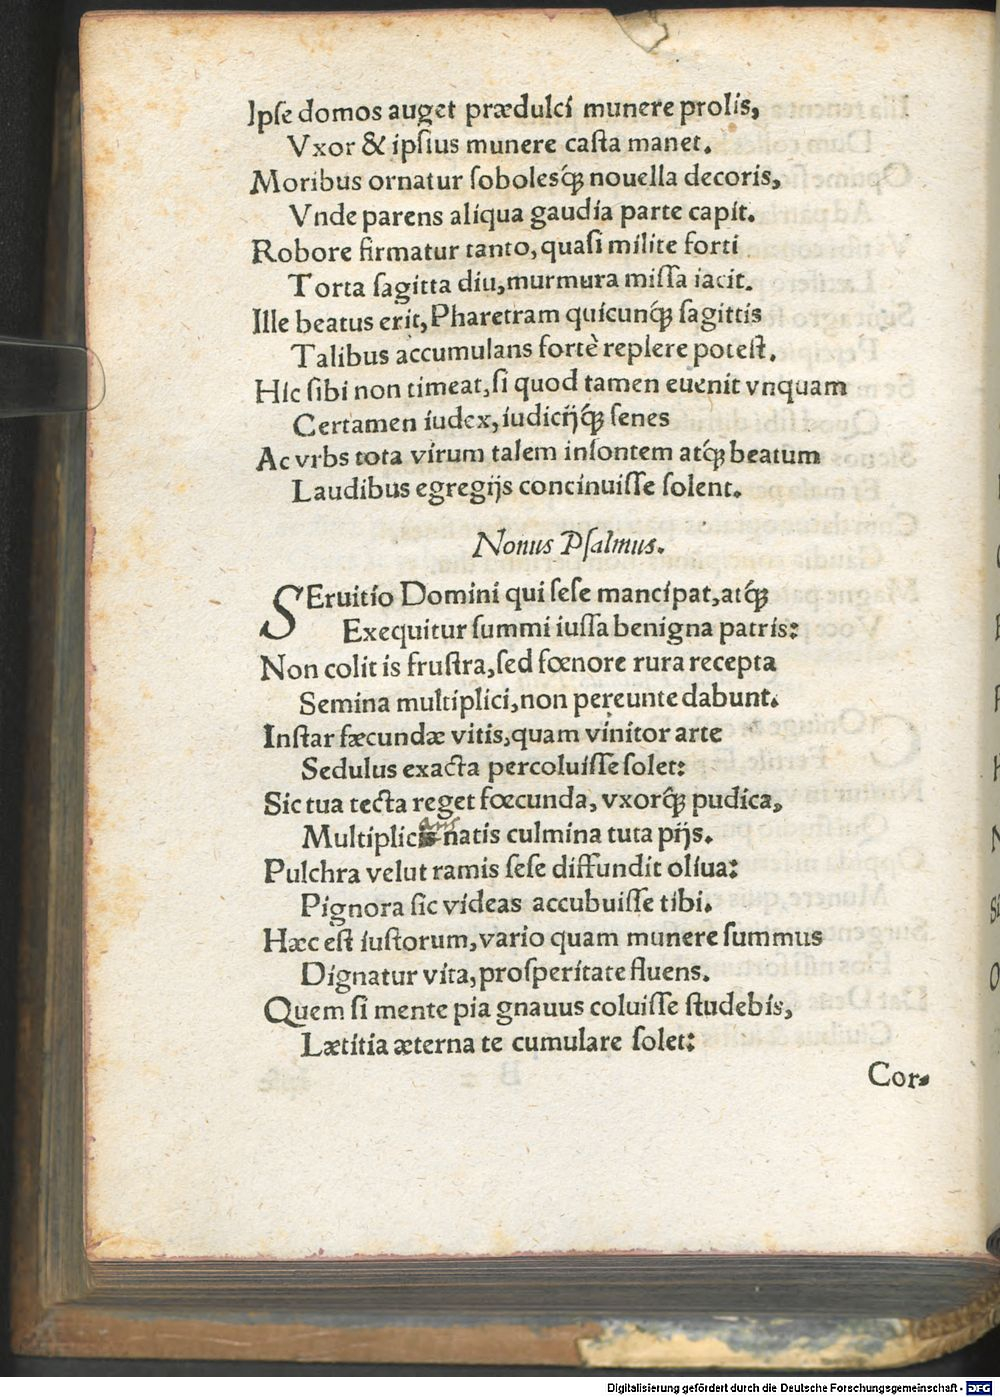 Ipſe domos auget prædulci munere prolis,
Vxor & ipſius munere caſta manet.
Moribus ornatur ſobolesq́ꝫ nouella decoris,
Vnde parens aliqua gaudia parte capit.
Robore firmatur tanto, quaſi milite forti
Torta ſagitta diu, murmura miſſa iacit.
Ille beatus erit, Pharetram quicunq́ꝫ ſagittis
Talibus accumulans fortè replere poteſt.
Hic ſibi non timeat, ſi quod tamen euenit vnquam
Certamen iudex, iudicijq́ꝫ ſenes
Ac vrbs tota virum talem inſontem atq́ꝫ beatum
Laudibus egregijs concinuiſſe ſolent.
Nonus Pſalmus.
SEruitio Domini qui ſeſe mancipat, atq́ꝫ
Exequitur ſummi iuſſa benigna patris:
Non colit is fruſtra, ſed fœnore rura recepta
Semina multiplici, non pereunte dabunt.
Inſtar fæcundæ vitis, quam vinitor arte
Sedulus exacta percoluiſſe ſolet:
Sic tua tecta reget fœcunda, vxorq́ꝫ pudica,
Multiplicis natis culmina tuta pijs.
Pulchra velut ramis ſeſe diffundit oliua:
Pignora ſic videas accubuiſſe tibi.
Hæc eſt iuſtorum, vario quam munere ſummus
Dignatur vita, proſperitate fluens.
Quem ſi mente pia gnauus coluiſſe ſtudebis,
Lætitia æterna te cumulare ſolet:
Cor-
Digitalisierung gefördert durch die Deutsche Forschungsgemeinschaft - DFG